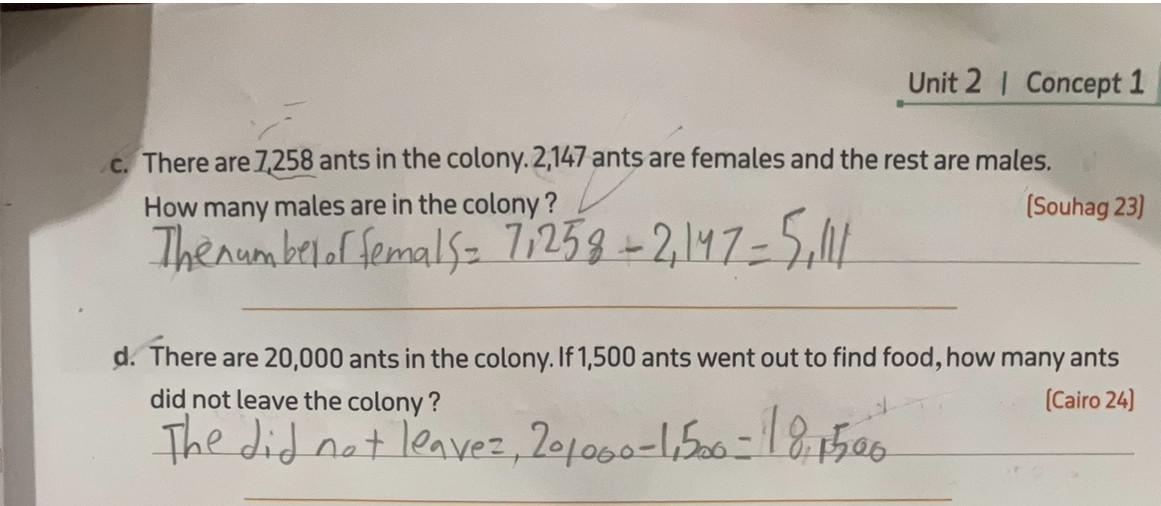 Unit 2 | Concept 1
c. There are 7,258 ants in the colony. 2,147 ants are females and the rest are males.
How many males are in the colony ?
(Souhag 23)
The number of femals= 7,258 - 2,147 = 5,111
d. There are 20,000 ants in the colony. If 1,500 ants went out to find food, how many ants
did not leave the colony ?
(Cairo 24)
The did not leave=, 20,000-1,500=18,500